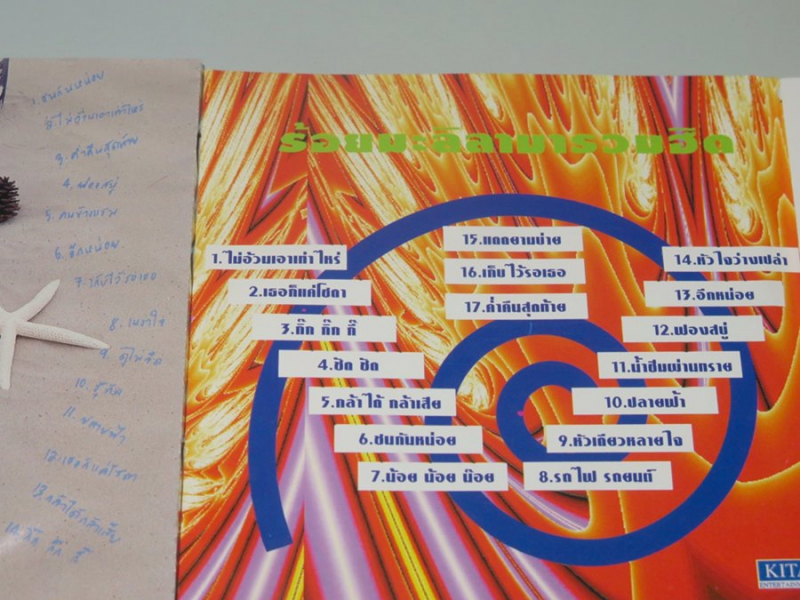 1.ชนกันหน่อย
2.ไม่อ้วนเอาเท่าไหร่
3.ค่ำคืนสุดท้าย
4.ฟองสบู่
6.อีกหน่อย
7.เก็บไว้รอเธอ
11.ปลายฟ้า
12.เธอก็แค่โซดา
13.กล้าได้กล้าเสีย
14.กิ๊ก กิ๊ก กี๊
ร้อยมะลิลามารวมฮิต
1.ไม่อ้วนเอาเท่าไหร่
2.เธอก็แค่โซดา
3.กิ๊ก กิ๊ก กี๊
4.ฮัก ฮัก
5.กล้าได้ กล้าเสีย
6.ชนกันหน่อย
7.น้อย น้อย น้อย
8.รถไฟ รถยนต์
9.หัวเดียวหลายใจ
10.ปลายฟ้า
11.น้ำซึมผ่านทราย
12.ฟองสบู่
13.อีกหน่อย
14.หัวใจว่างเปล่า
15.แดดยามบ่าย
16.เก็บไว้รอเธอ
17.ค่ำคืนสุดท้าย
KITA